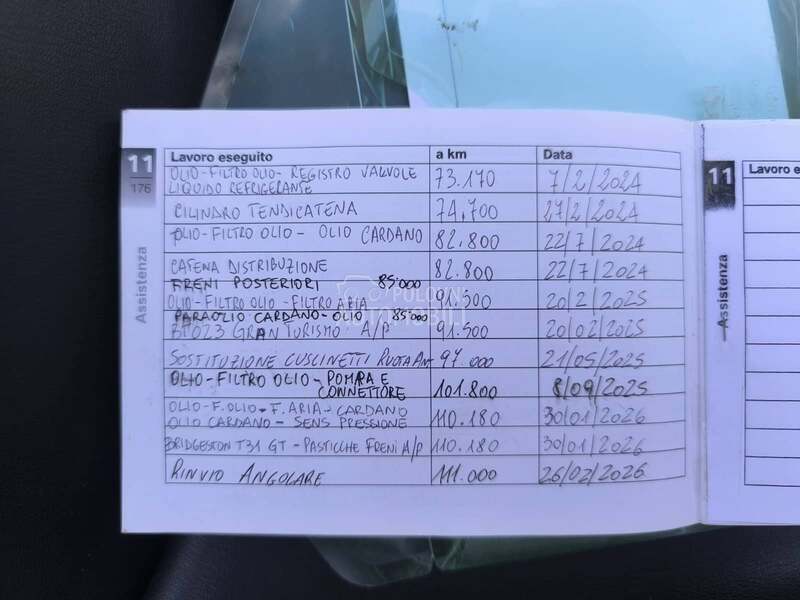 11
176
Assistenza
Lavoro eseguito a km Data
OLIO-FILTRO OLIO- REGISTRO VALVOLE
LIQUIDO REFRIGERANTE 73.170 7/2/2024
CILINDRO TENDICATENA 74,700 27/2/2024
OLIO-FILTRO OLIO- OLIO CARDANO 82.800 22/7/2024
CATENA DISTRIBUZIONE 82.800 22/7/2024
FRENI POSTERIORI 85'000
OLIO-FILTRO OLIO-FILTRO ARIA 91.500 20/2/2025
PARAOLIO CARDANO-OLIO 85'000
BT023 GRAN TURISMO A/P 91.500 20/02/2025
SOSTITUZIONE CUSCINETTI RUOTA ANT 97.000 21/05/2025
OLIO-FILTRO OLIO-POMPA E
CONNETTORE 101.800 8/09/2025
OLIO-F.OLIO-F.ARIA-CARDANO
OLIO CARDANO-SENS PRESSIONE 110.180 30/01/2026
BRIDGESTON T31 GT-PASTICCHE FRENI A/P 110.180 30/01/2026
RINVIO ANGOLARE 111.000 26/02/2026
11
Assistenza
Lavoro e
POLOVNI
AUTOMOBILI